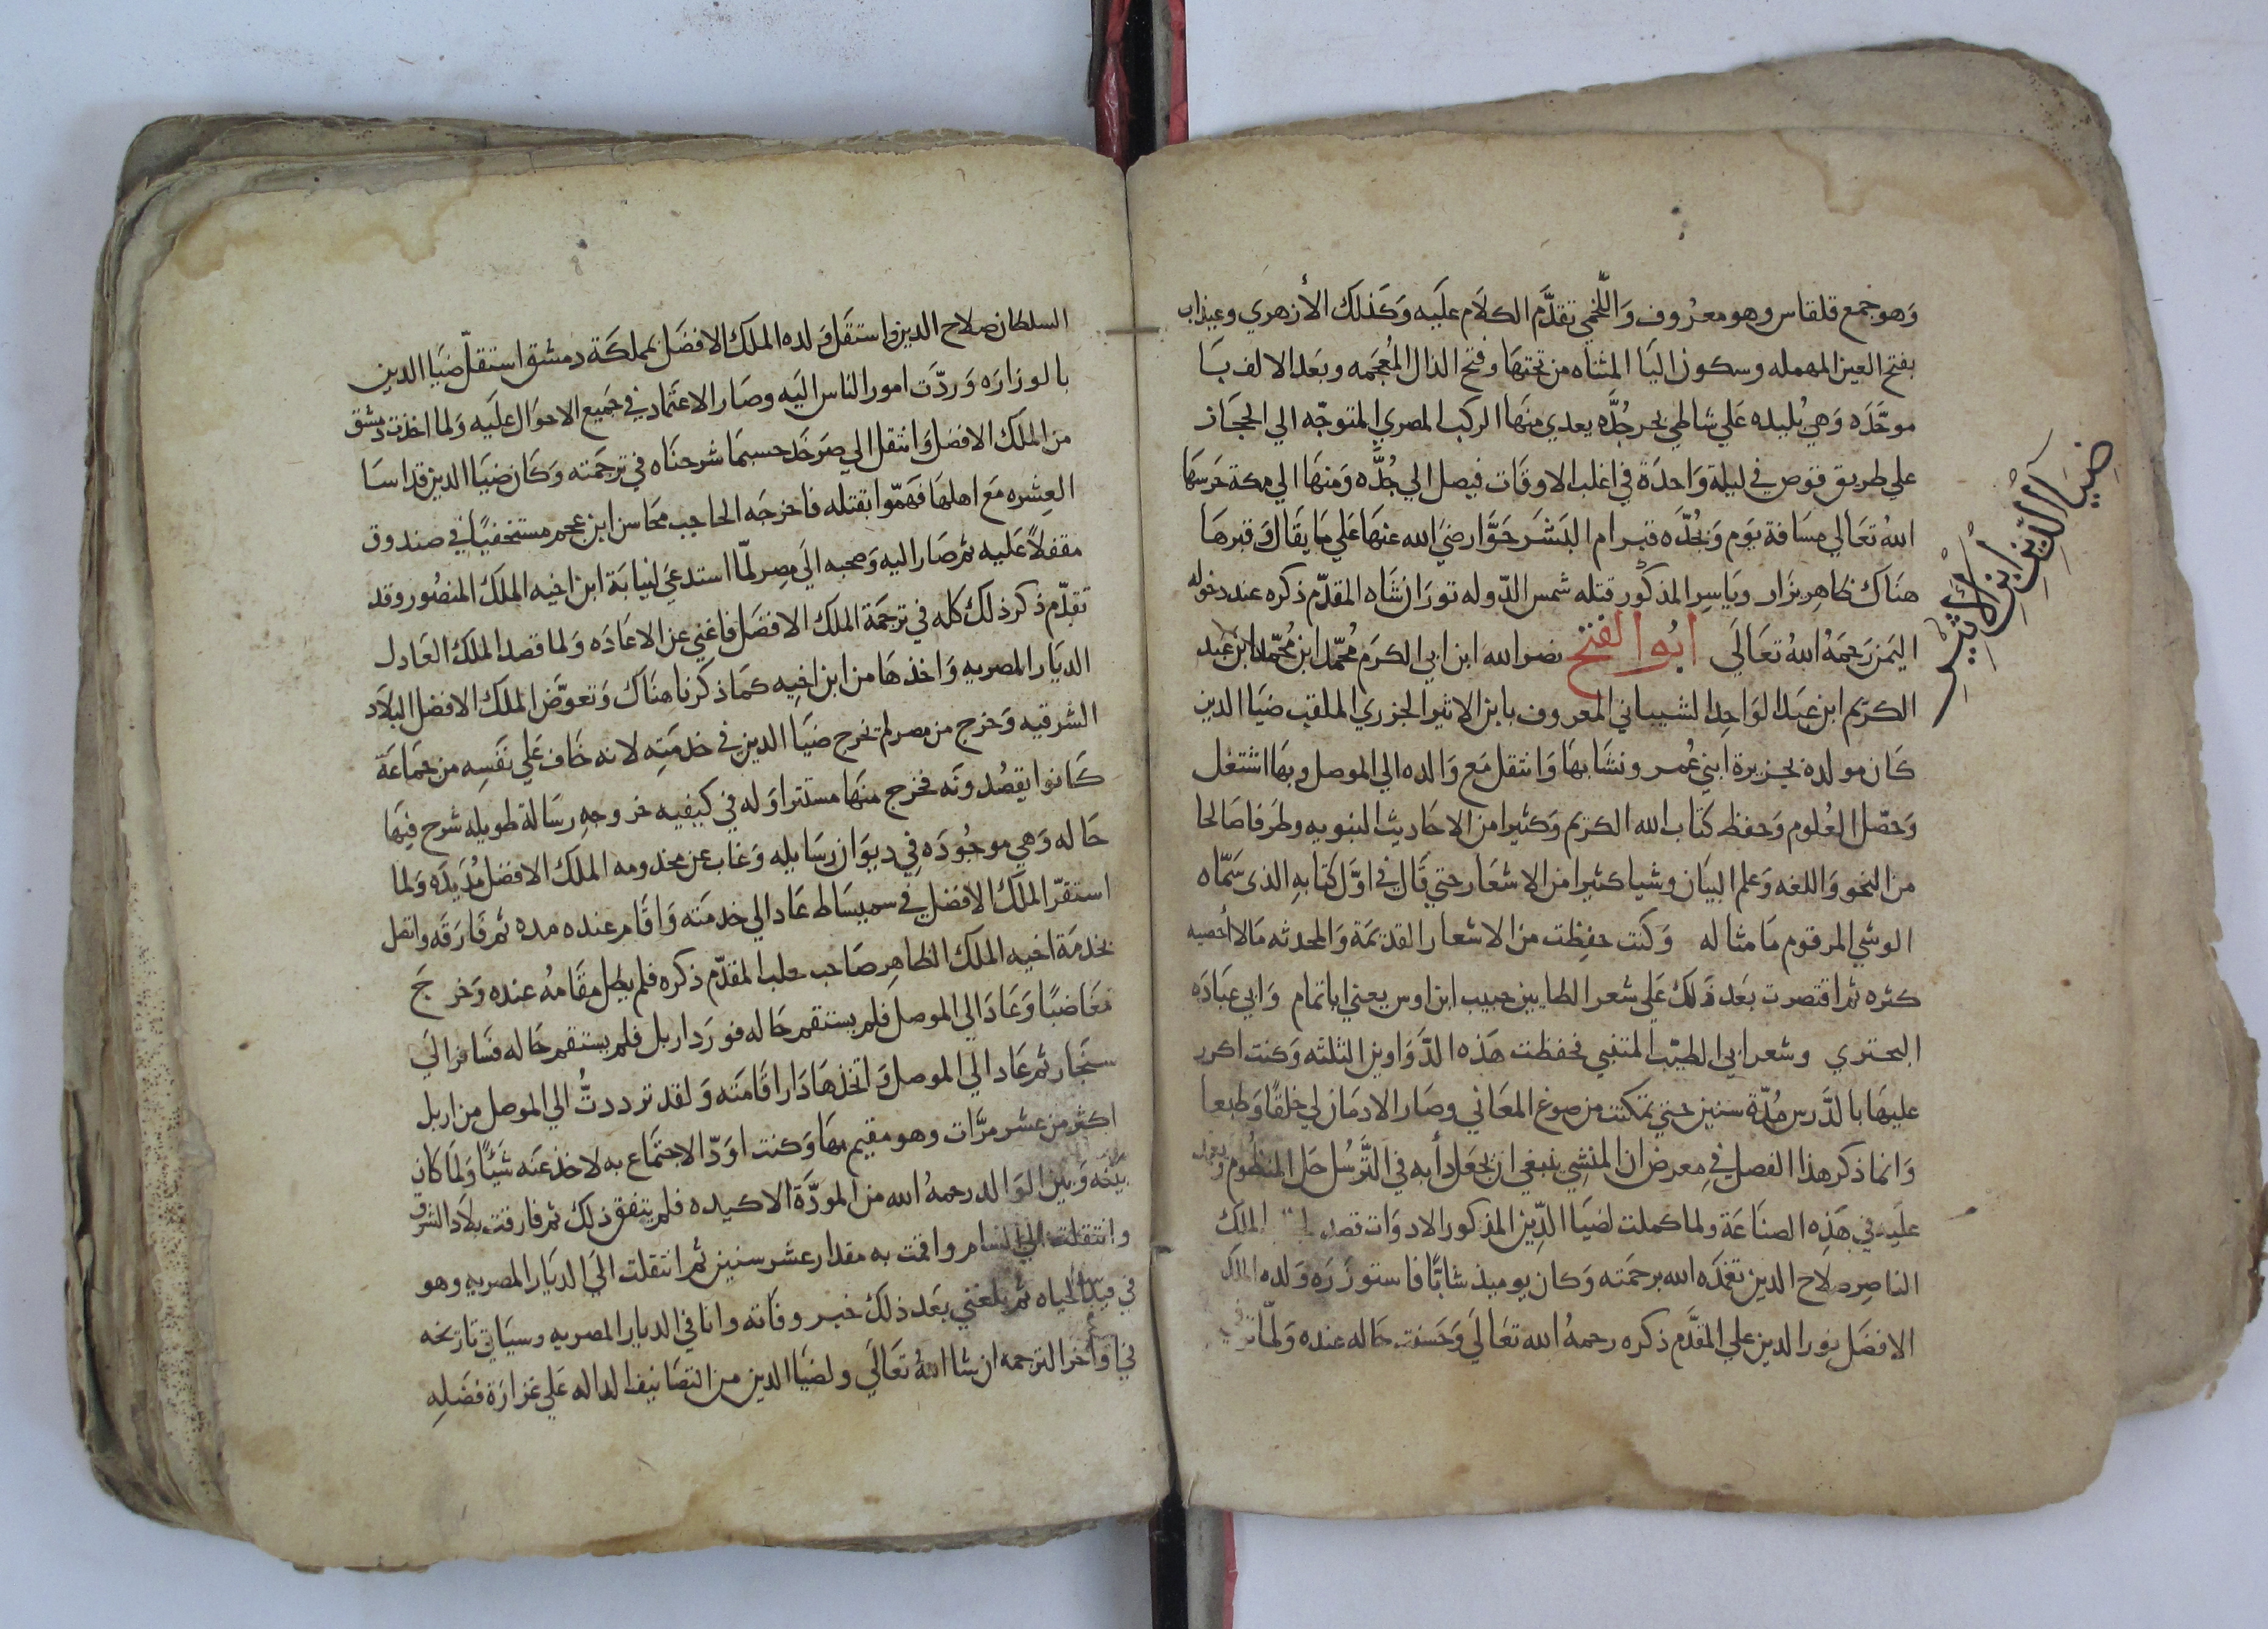 وَهو جمع قلقاس وهو معرُوف وَاللَّخمي تقدَّم الكلام علَيه وَكَذلك الأزهري وعيذاب
بفتح العين المهمله وسكون اليا المثناه من تحتهَا وفتح الذال المُعجَمه وبعَد الالف بَا
موحَّدَه وَهي بُليده عَلي شاطي بحر جُدَّه يعدي منهَا الركب المصري المتوجّه الي الحجَاز
علي طريق قوص في ليلة وَاحدَة في اغلب الاوقَات فيصل الي جُدَّه وَمنهَا الي مكة حَرسهَا
اللهُ تعَالي مسَافة يَوم وَبجُدَّه قبر ام البَشَر حَوَّا رضيَ الله عنهَا عَلي مَا يقَال وَقبرهَا
هنَاك ظاهِر يزَار وَيَاسِر المذكور قتله شمس الدّوله تورَان شَاه المقدّم ذكره عند دخوله
اليَمن رَحمَهُ اللهُ تعَالَي ابُو الفَتح نصر الله ابن ابي الكرَم مُحمّد ابن مُحمّد ابن عَبد
الكريم ابن عَبد الوَاحِد الشيباني المعروف بابن الاثير الجزري الملقب ضيَا الدين
كَان مولده بجزيرة ابني عُمر ونشَا بهَا وَانتقل مَع وَالده الي الموصل وبهَا اشتغل
وَحصّل العُلوم وَحفظ كتَاب الله الكريم وَكثيرا من الاحَاديث النبويه وطرَفا صَالحا
من النحو وَاللغه وَعلم البيَان وشيا كثيرا من الاشعَار حتي قَال في اوَّل كتَابهِ الذي سَمّاه
الوشي المرقوم مَا مثاله وَكنت حفِظت من الاشعار القديمَة وَالمحدثه مَالا أحصيه
كثره ثم اقتصرت بَعد ذَلك عَلي شعر الطايين حبيب ابن اوس يعني اباتمام وَابي عبَادَه
البحتري وشعر ابي الطيّب المتنبي فحفظت هَذه الدَّوَاوين الثلثه وَكنت اكرر
عليهَا بالدَّرس مُدّة سنين حتي تمكنت من صوغ المعَاني وصَار الادمَان لي خلقًا وَطبعا
وَانما ذكر هذا الفصل في مِعرض ان المنشِي ينبغي ان يجعَل دأبه في التَّرسُل حَل المنظُوم
علَيه في هَذِه الصنَاعَة ولما كملت لضيَا الدِّين المذكور الادوَات قصد الملك
الناصِر صلاح الدين تغمدَه الله برحمَته وَكان يوميذ شابًّا فاستوزَرَه وَلده الملك
الافضَل نور الدين علي المقدَّم ذكره رحمهُ الله تعَالَي وَحَسنت حَاله عنده وَلمّا توفي
ضِيَا الدِّين ابن الاثير
السلطان صلاح الدين وَاستقَل وَلده الملك الافضَل بمملكَة دمشق استقلّ ضيَا الدين
بالوزارَه وَردَّت امور الناس اليَه وصَار الاعتمَاد في جَميع الاحوَال علَيه وَلما اخذت دمشق
من الملك الافضَل وَانتقل الي صَرخد حسبمَا شرحنَاه في ترجمَته وَكَان ضيَا الدين قد اسَا
العِشره مَع اهلهَا فهَمّوا بقتله فاخرجَه الحاجب محَاسن ابن عجم مستخفيًا في صندوق
مقفلاً عَليه ثم صَار اليه وَصحبه الَي مِصر لمّا استدعيَ لنيابَة ابن اخيه الملك المنصُور وقد
تقدّم ذكر ذلك كله في ترجمَة الملك الافضَل فاغني عن الاعَادَه وَلما قصد الملك العَادل
الديَار المصريه وَاخذهَا من ابن اخِيه كمَا ذكرنا هنَاك وَتعوَّض الملك الافضل البلَاد
الشرقيه وَخرج من مصر لم يخرج ضيَا الدين في خدمَتِه لانه خَاف عَلي نَفسِه من جمَاعَة
كَانوا يقصُدونَه فخرج منهَا مستترا وَله في كيفيه خروجهِ رسَالة طويله شرح فيهَا
حَاله وَهي موجُودَه في ديوَان رسَايله وَغاب عن مخدومه الملك الافضل مُدَيدَه وَلما
استقرّ الملك الافضل في سميسَاط عَاد الي خدمَته وَاقَام عنده مده ثم فارَقَه واتصل
بخدمَة اخيه الملك الظاهِر صَاحب حلب المقدّم ذكره فلم يطل مقَامهُ عنده وَخرج
مغَاضبًا وَعَادَ الي الموصل فلم يستقم حَاله فورَد اربل فلم يستقم حَاله فسَافر الَي
سنجَار ثم عَاد الي الموصل وَاتخذهَا دَار اقَامَته وَلقد تردد‌تُ الي الموصل من اربل
اكثر من عشر مرَّات وهو مقيم بهَا وَكنت اوَدّ الاجتمَاع به لاخذ عنَه شَيئًا وَلمَا كان
بينَه وَبين الوَالد رحمهُ الله من المودَّة الاكيده فلم يتفق ذلك ثم فارقت بلَاد الشرق
وانتقلت الي الشام واقمت به مقدار عشر سنين ثم انتقلت الَي الديَار المصريه وهو
في قيد الحياه ثم بلغني بَعد ذلك خبر وفاته وانا في الديار المصريه وسيَاتي تاريخه
في اواخر الترجمه ان شا اللهُ تعَالَي ولضيَا الدين من التصَانيف الداله عَلي غزارَة فضَلِهِ